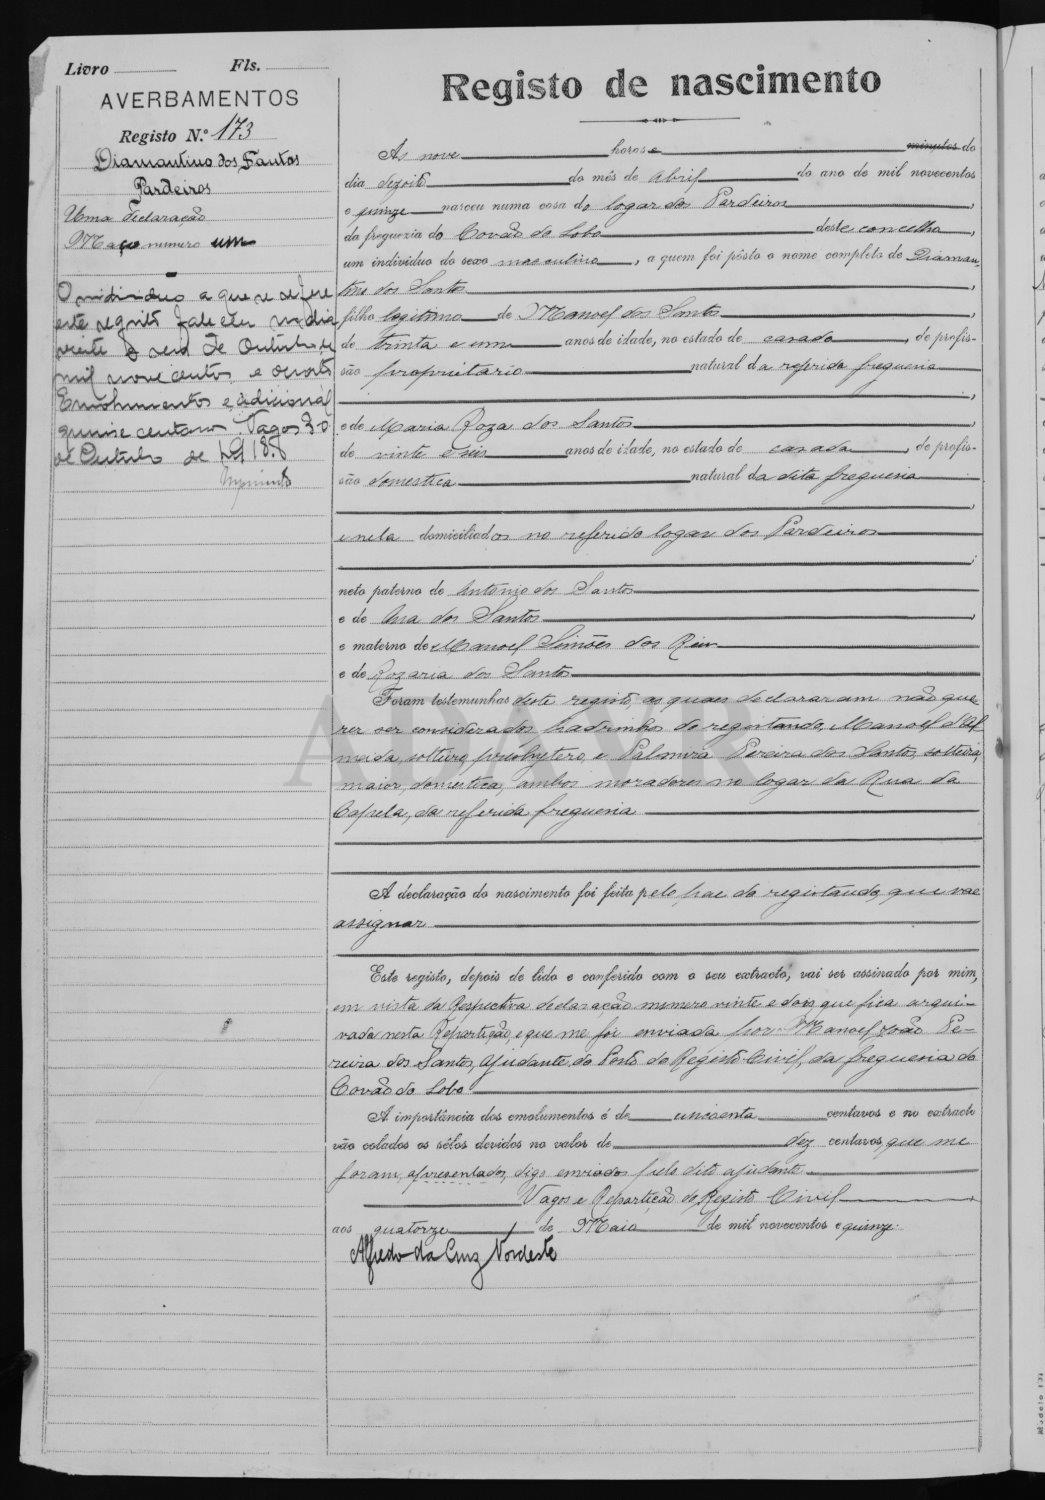 Livro Fls.
AVERBAMENTOS
Registo N.º 173
Diamantino dos Santos
Pardeiros
Uma declaração
Maço numero um
O individuo a que se refere
este registo faleceu no dia
vinte e seis de Outubro de
mil novecentos e
Emolumentos e adicional
quinse centavos. Vagos 30
de Outubro de 1918.
Registo de nascimento
As nove horas e minutos do
dia dezoito do mês de Abril do ano de mil novecentos
e quinze nasceu numa casa do logar dos Pardeiros,
da freguezia do Covão do Lobo deste concelho,
um individuo do sexo masculino, a quem foi pôsto o nome completo de Diaman-
tino dos Santos,
filho legitimo de Manoel dos Santos,
de trinta e um anos de idade, no estado de casado, de profis-
são proprietario natural da referida freguesia,
e de Maria Roza dos Santos,
de vinte e seis anos de idade, no estado de casada, de profis-
são domestica natural da dita freguesia,
e nela domiciliados no referido logar dos Pardeiros;
neto paterno de Antonio dos Santos
e de Ana dos Santos,
e materno de Manoel Simões dos Reis
e de Rozaria dos Santos
Foram testemunhas deste registo, as quaes declararam não que-
rer ser considerados padrinhos do registando, Manoel d'Al-
meida, solteiro, presbytero, e Palmira Pereira dos Santos, solteira,
maior, domestica, ambos moradores no logar da Rua da
Capela, da referida freguesia
A declaração do nascimento foi feita pelo pae do registando, que vae
assignar
Este registo, depois de lido e conferido com o seu extracto, vai ser assinado por mim,
em vista da Respectiva declaração numero vinte e dois que fica arqui-
vada nesta Repartição, e que me foi enviada por Manoel João Pe-
reira dos Santos, ajudante do Posto do Registo Civil, da freguesia do
Covão do Lobo
A importância dos emolumentos é de cincoenta centavos e no extracto
vão colados os sêlos devidos no valor de dez centavos, que me
foram, apresentados, digo enviados pelo dito ajudante.
Vagos e Repartição do Registo Civil,
aos quatorze de Maio de mil novecentos e quinze.
Alfredo da Cruz Nordeste
ADAVR